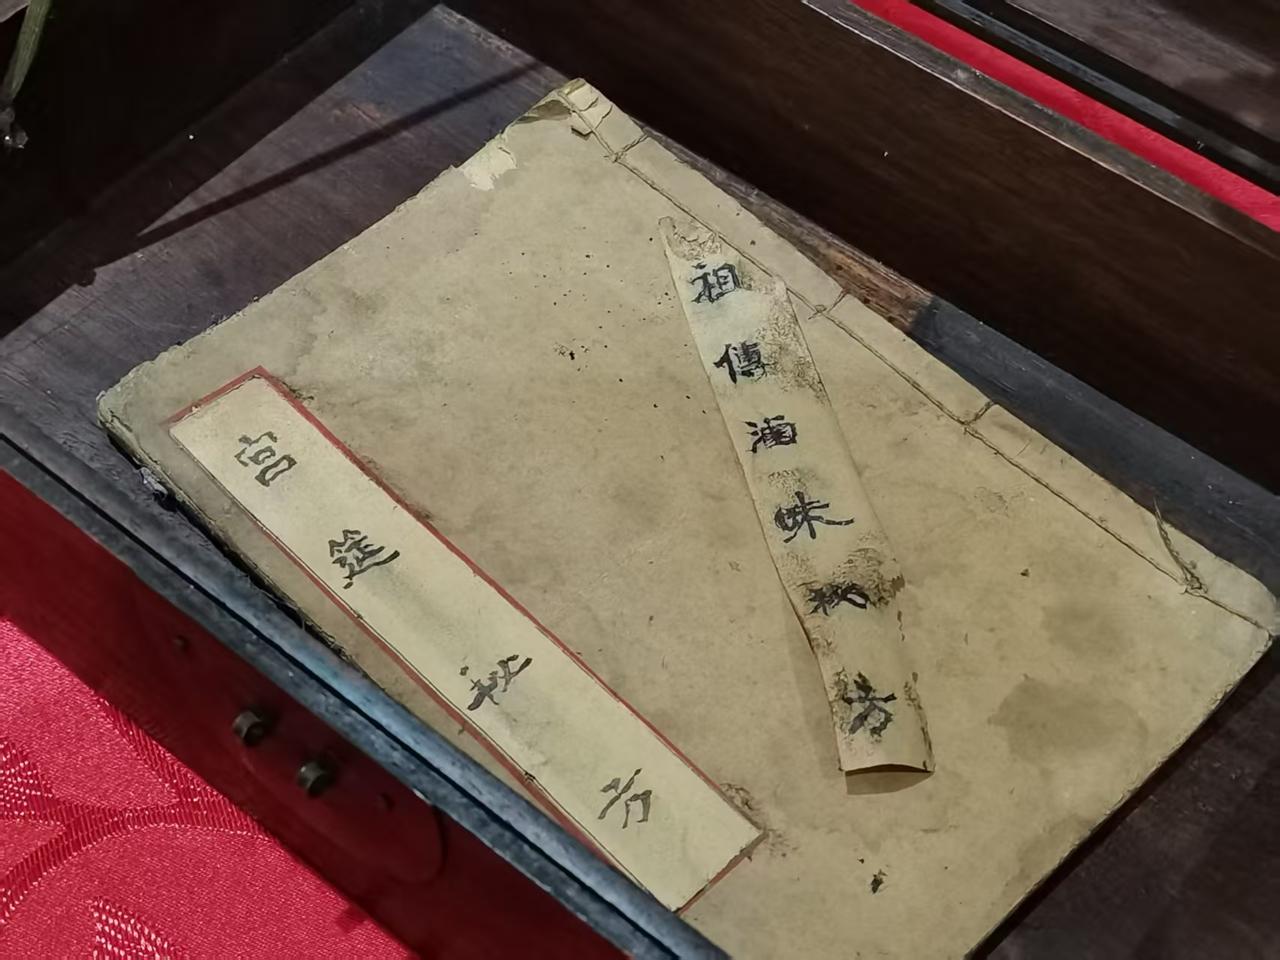 祖傳滷味秘方
宫筵秘方